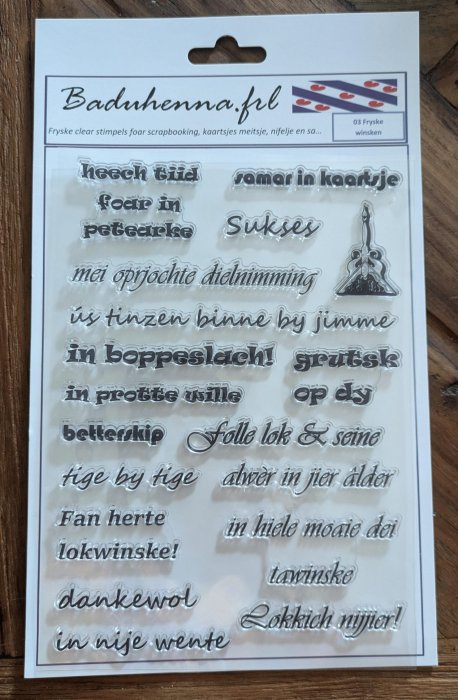 Baduhenna.frl
Fryske clear stimpels foar scrapbooking, kaartsjes meitsje, nifelje en sa...
03 Fryske
winsken
heech tiid
foar in
petearke
samar in kaartsje
Sukses
mei oprjochte dielnimming
ús tinzen binne by jimme
in boppeslach!
grutsk
op dy
in protte wille
betterskip
Folle lok & seine
tige by tige
alwèr in jier âlder
Fan herte
lokwinske!
in hiele moaie dei
tawinske
dankewol
Lokkich nijjier!
in nije wente